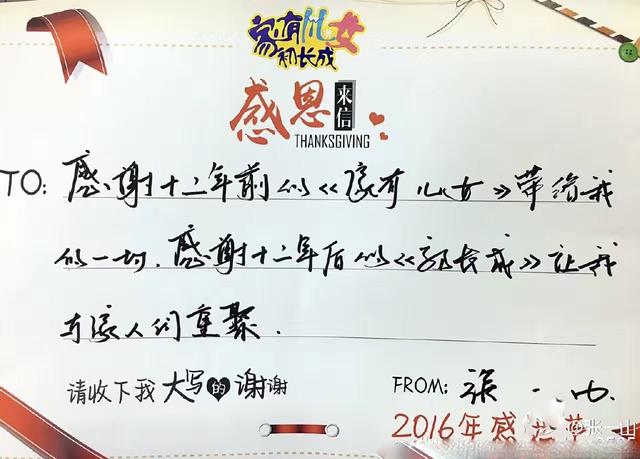 家有儿女
初长成
感恩 来信
THANKSGIVING
TO: 感谢十二年前的《家有儿女》带给我
的一切,感谢十二年后的《初长成》让我
与家人们重聚.
请收下我大写的谢谢
FROM: 张一山
2016年感恩节
@张一山